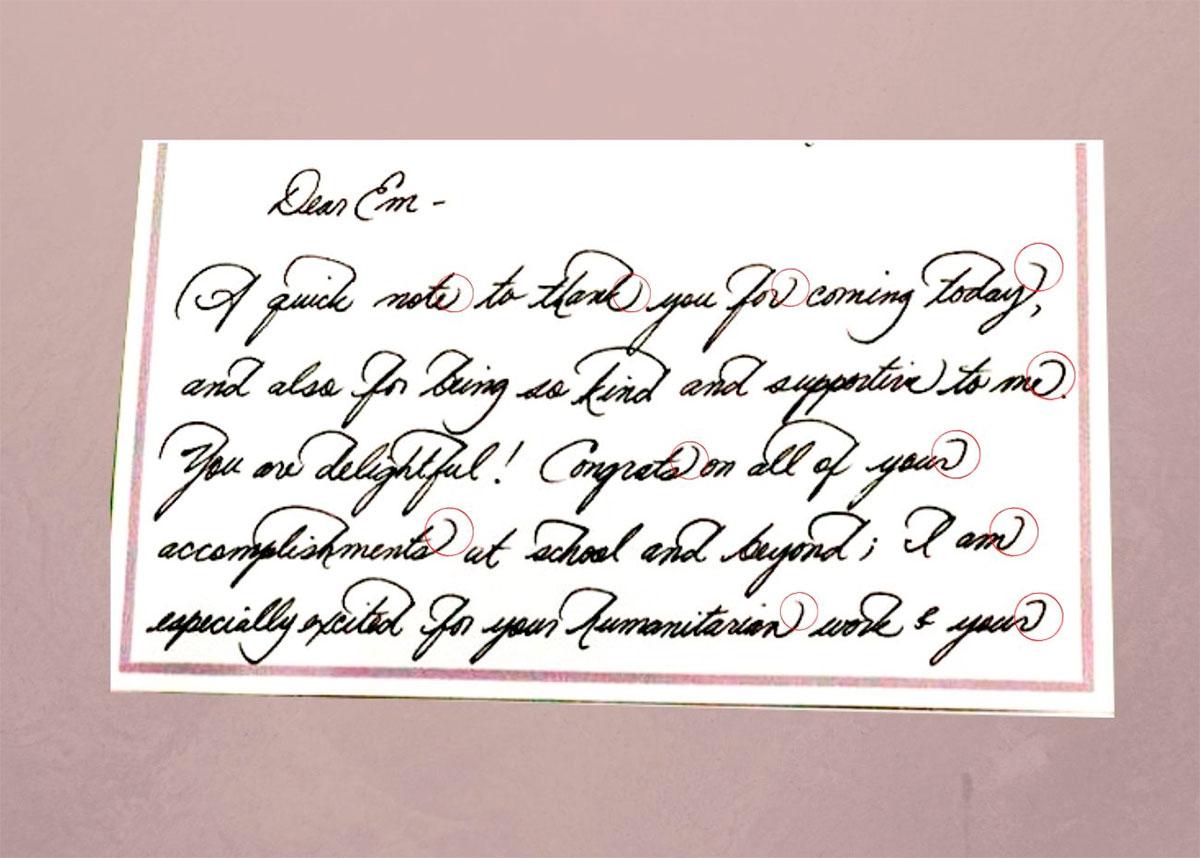 Dear Em -
A quick note to thank you for coming today,
and also for being so kind and supportive to me.
You are delightful! Congrats on all of your
accomplishments at school and beyond; I am
especially excited for your humanitarian work & your